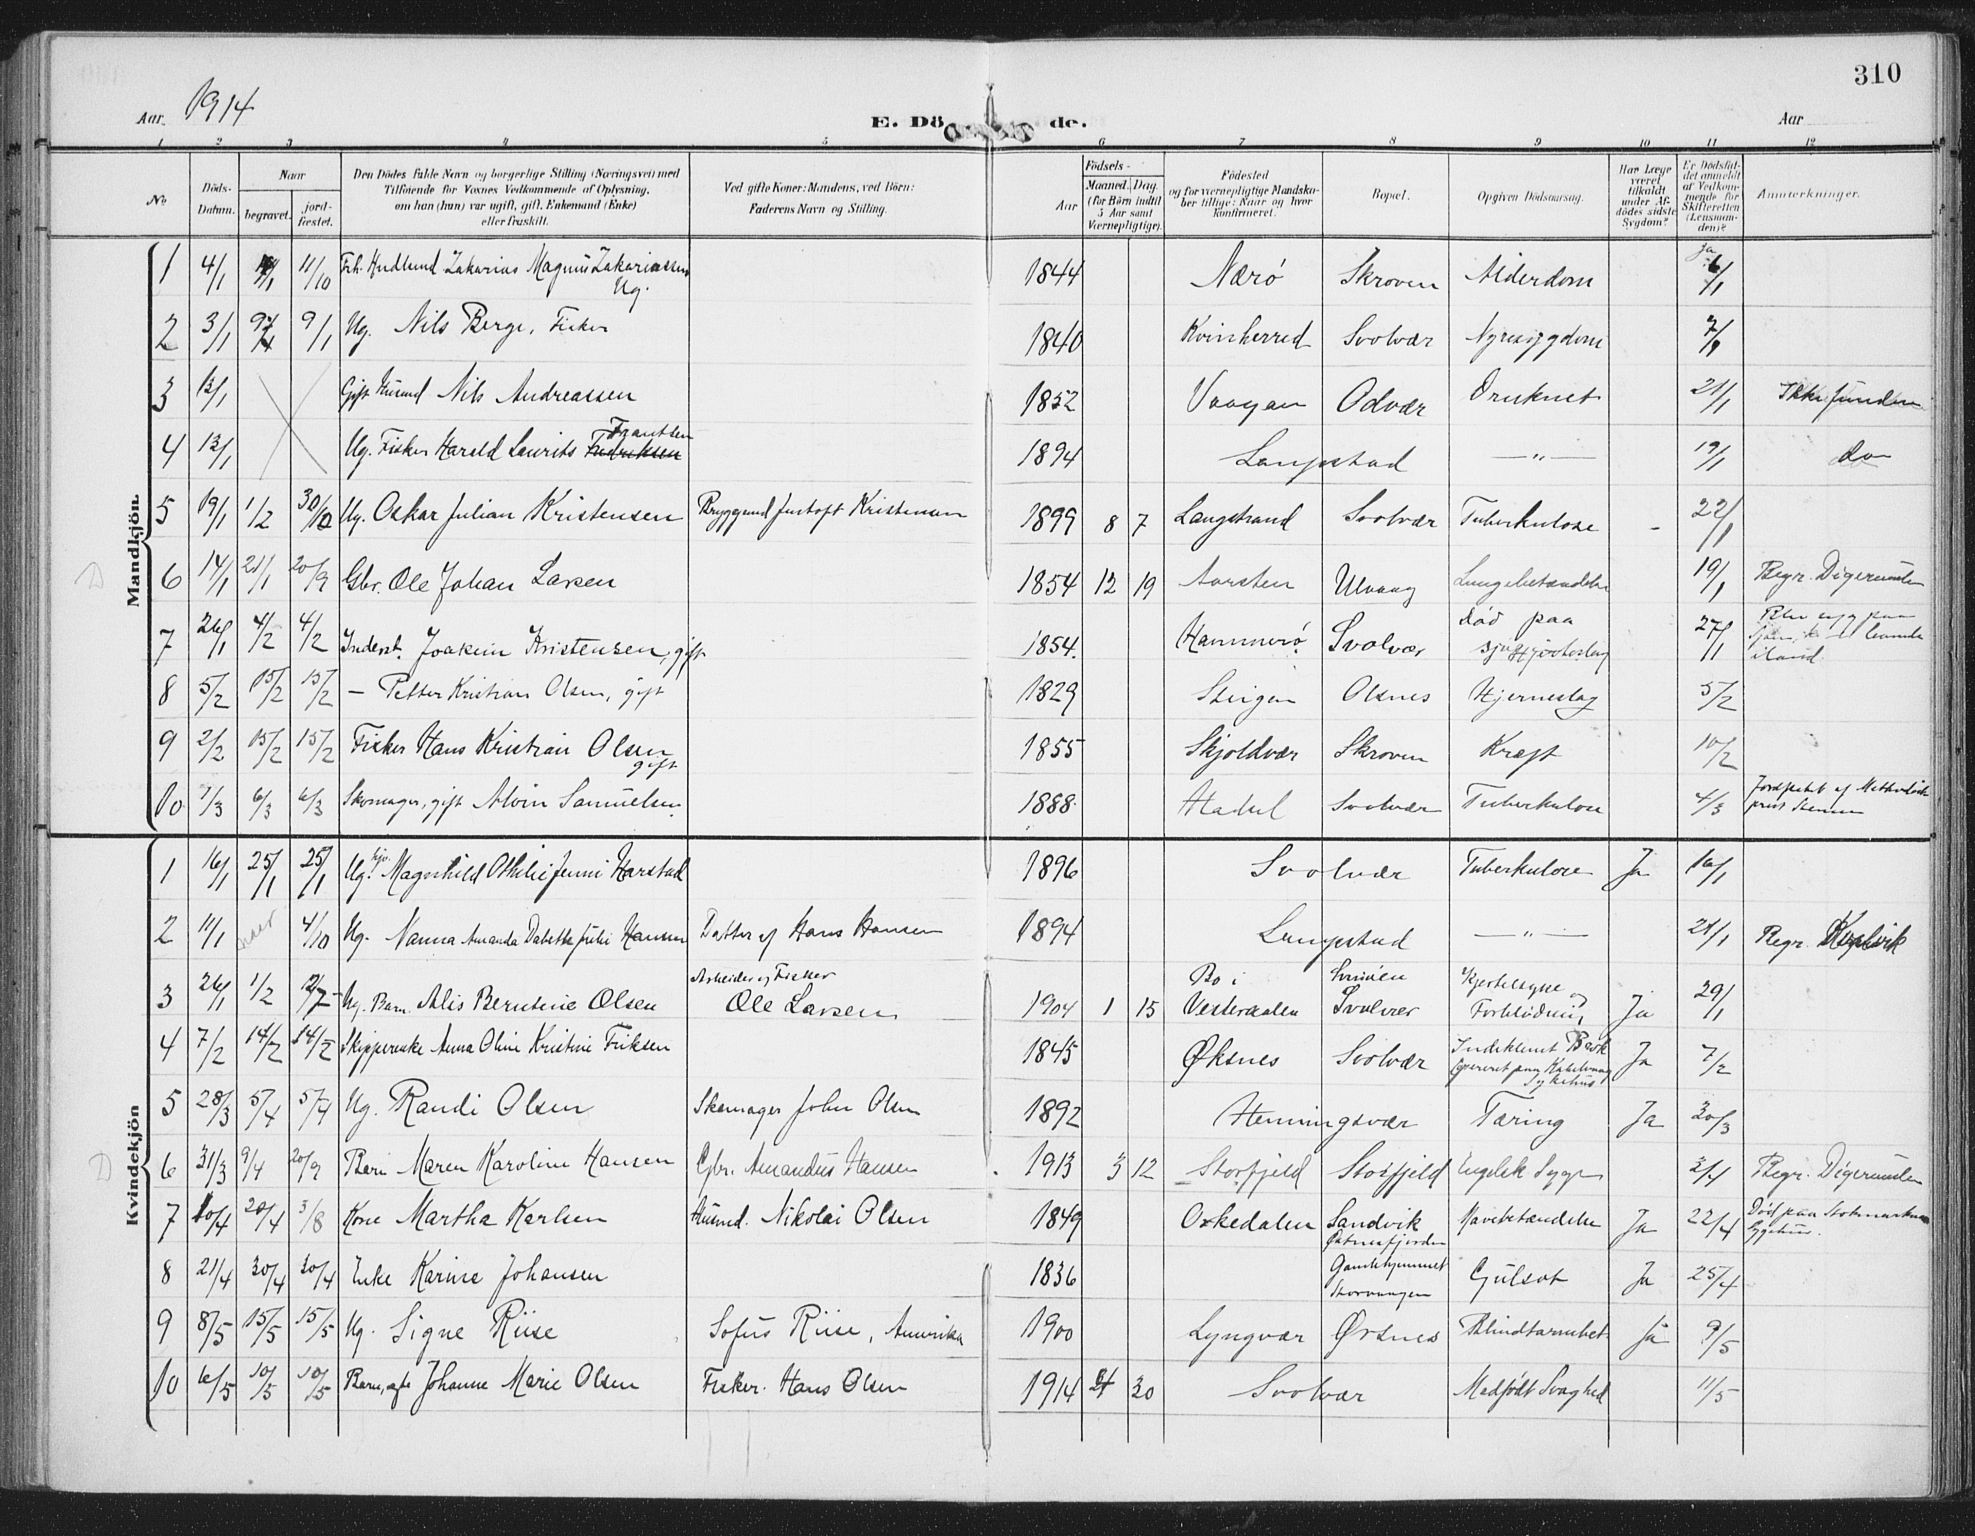 310
Aar 1914
E. Dö de.
Aar
1 2 3 4 5 6 7 8 9 10 11 12
No
Döds-Datum.
Naar
begravet.
jord-fæstet.
Den Dödes fulde Navn og borgerlige Stilling (Næringsvei) med
Tilföiende for Voxnes Vedkommende af Oplysning,
om han (hun) var ugift, gift, Enkemand (Enke)
eller fraskilt.
Ved gifte Koner: Mandens, ved Börn:
Faderens Navn og Stilling.
Födsels-
Aar
Maaned. Dag.
(for Börn indtil 5 Aar samt Værnepligtige).
Födested
og for værnepligtige Mandska-
ber tillige: Naar og hvor
konfirmeret.
Bopæl.
Opgiven Dödsaarsag.
Har Læge været tilkaldt under Af-dödes sidste Sygdom?
Er Dödsfal-det anmeldt af Vedkom-mende for Skifteretten (Lensman-den)?
Anmærkninger.
Mandkjön.
1 4/1 11/10 Magnus Zakariassen Ug. 1844 Nærö Skroven Alderdom Ja 6/1
2 3/1 9/1 Ug. Nils Berge, Fisker 1840 Kvinherred Svolvær Nyresygdom 7/1
3 13/1 Gift Husmd Nils Andreassen 1852 Vaagan Odvær Druknet 21/1 Ikke funden
4 13/1 Ug. Fisker Harald Laurits Fredriksen Frantsen 1894 Langstad —"— 19/1 do
5 19/1 1/2 30/10 Ug. Oskar Julian Kristensen Kristensen 1899 8 7 Langstrand Svolvær Tuberkulose - 22/1
6 14/1 21/1 20/9 Gbr. Ole Johan Larsen 1854 12 19 Aarsten Ulvaag Lungebetændelse 19/1 Begr. Digermulen
7 26/1 4/2 4/2 Inderst. Joakim Kristensen, gift 1854. Hammerö Svolvær Död paa sjøen 27/1 iland.
8 5/2 15/2 15/2 — Petter Kristian Olsen, gift 1829 Steigen Olsnes Hjerneslag 5/2
9 2/2 15/2 15/2 Fisker Hans Kristian Olsen gift 1855 Skjoldvær Skroven Kræft 10/2
10 1/3 6/3 6/3 Skomager, gift Alvin Samuelsen 1888 Hadsel Svolvær Tuberkulose 4/3 Jordfæstet af Methodist-
Kvindekjön
1 16/1 25/1 25/1 Ug. Magnhild Othilie Jenni Harstad 1896 Svolvær Tuberkulose Ja 16/1
2 11/1 4/10 Ug. Nanna Amanda Hansen Datter af Hans Hansen 1894 Langstad —"— 21/1 Begr.
3 26/1 1/2 Ug. Barn. Alis Berntine Olsen Arbeider og Fisker Ole Larsen 1904 1 15 Bö i Vesteraalen Svolvær Kjertelsyge og Forblödning Ja 29/1
4 7/2 14/2 14/2 Skipperenke Anna Oline Kristine Eriksen 1845 Øksnes Svolvær Indeklemt Brok Opereret paa Kabelvaag Sykehus Ja 7/2
5 28/3 5/4 5/4 Ug. Randi Olsen Skomager John Olsen 1892 Henningsvær Tæring Ja 30/3
6 31/3 9/4 20/9 Barn Maren Karoline Hansen Gbr. Amandus Hansen 1913 3 12 Storfjeld Storfjeld Engelsk Syge 2/4 Begr. Digermulen
7 10/4 20/4 3/8 Kone Martha Karlsen Husmd. Nikolai Olsen 1849 Orkedalen Sandvik Østnesfjorden Mavebetændelse Ja 22/4 Död paa Stokmarknes Sygehus.
8 21/4 30/4 30/4 Enke Karine Johansen 1836 Gamlehjemmet Storvaagen Gulsot Ja 25/4
9 8/5 15/5 15/5 Ug. Signe Riise Sofus Riise, Amerika 1900 Lyngvær Ørsnes Blindtarmbet Ja 9/5
10 6/5 10/5 10/5 Barn, Johanne Marie Olsen Fisker. Hans Olsen 1914 4 30 Svolvær Medfödt Svaghed 11/5